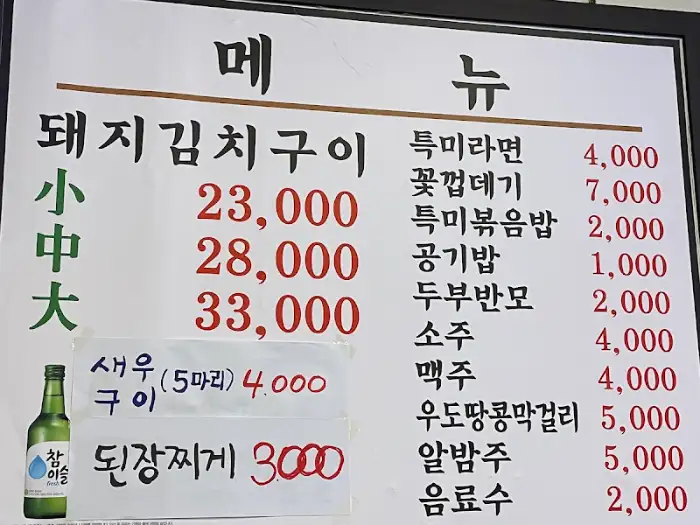 메 뉴
돼지김치구이
小 23,000
中 28,000
大 33,000
새우구이 (5마리) 4.000
된장찌게 3.000
참이슬
fresh
특미라면 4,000
꽃껍데기 7,000
특미볶음밥 2,000
공기밥 1,000
두부반모 2,000
소주 4,000
맥주 4,000
우도땅콩막걸리 5,000
알밤주 5,000
음료수 2,000